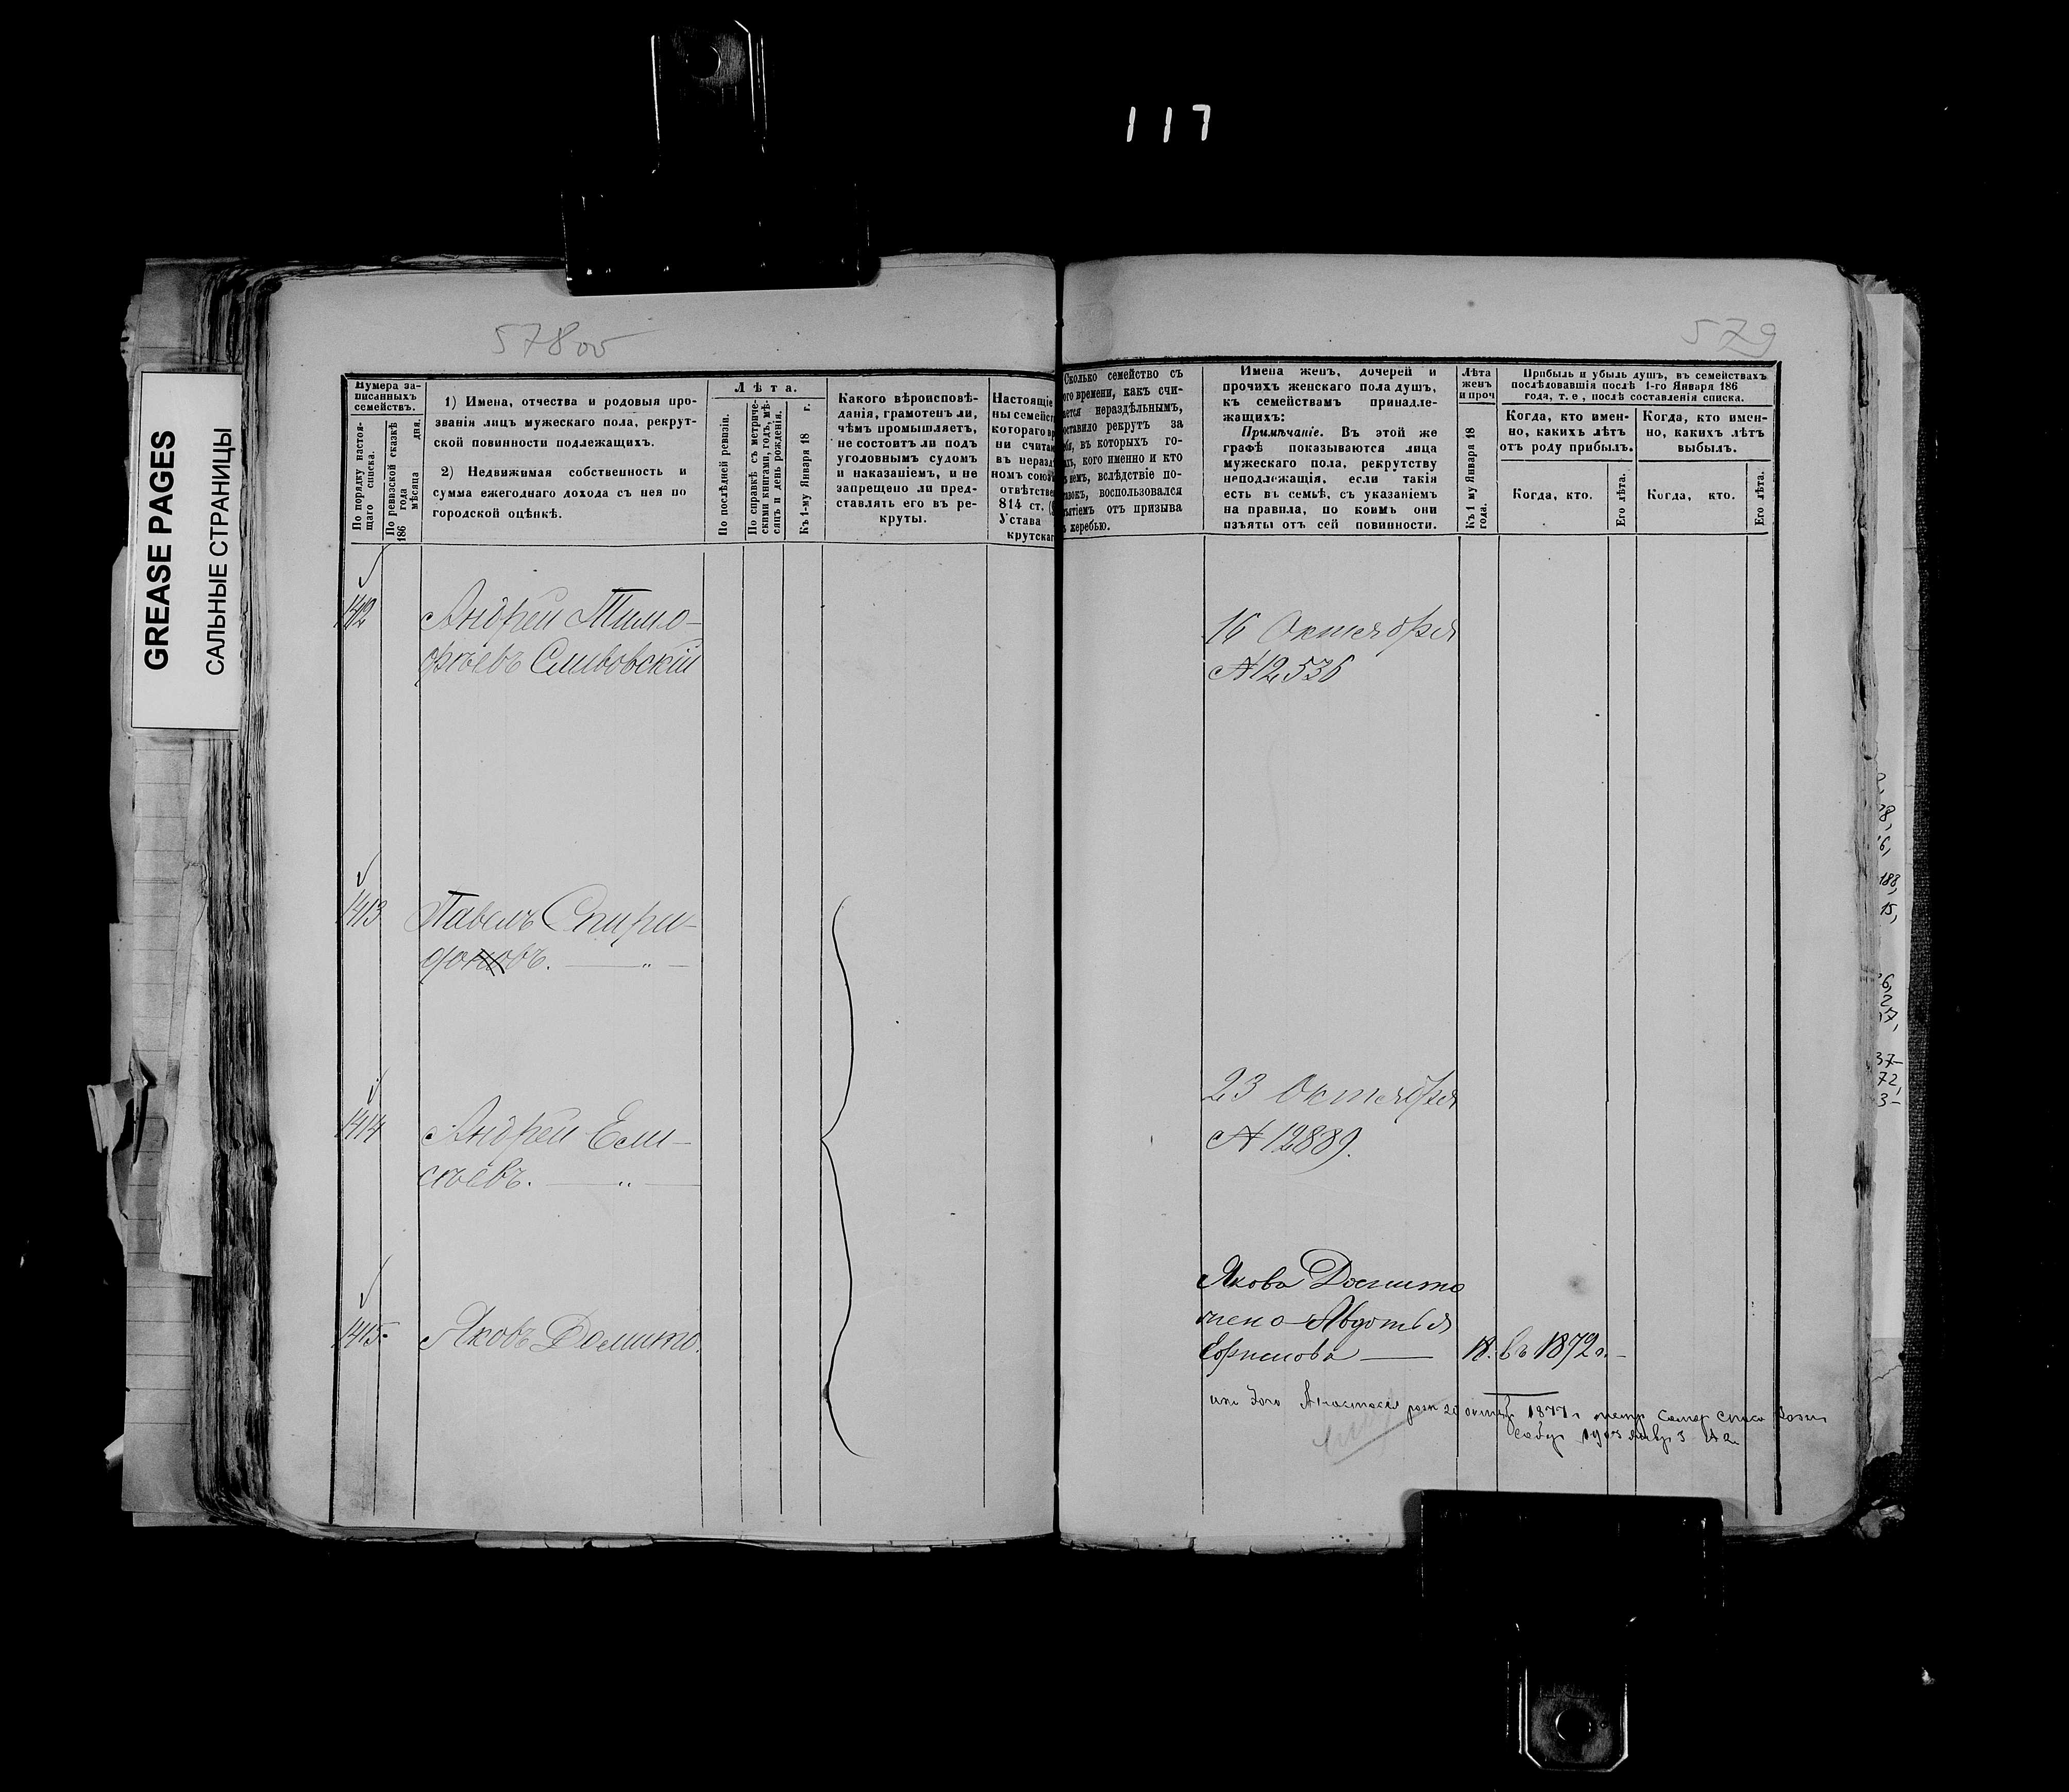 117
GREASE PAGES
САЛЬНЫЕ СТРАНИЦЫ
578 об
579
Нумера за-
писанныхъ
семействъ.
По порядку настоя-
щаго списка.
По ревизской сказкѣ
186 года мѣсяца дня.
1) Имена, отчества и родовыя про-
званія лицъ мужескаго пола, рекрут-
ской повинности подлежащихъ.
2) Недвижимая собственность и
сумма ежегоднаго дохода съ нея по
городской оцѣнкѣ.
Лѣта.
По послѣдней ревизіи.
По справкѣ съ метриче-
скими книгами, годъ, мѣ-
сяцъ и день рожденія.
Къ 1-му Января 18 г.
Какого вѣроисповѣ-
данія, грамотенъ ли,
чѣмъ промышляетъ,
не состоитъ ли подъ
уголовнымъ судомъ
и наказаніемъ, и не
запрещено ли пред-
ставлять его въ ре-
круты.
Настоящіе
ны семейс
котораго
ни счита
въ нераз
номъ союз
отвѣтстве
814 ст.
Устава
крутска
Сколько семейство съ
ого времени, какъ счи-
ается нераздѣльнымъ,
оставило рекрутъ за
въ которыхъ го-
кого именно и кто
немъ, вслѣдствіе по-
воспользовался
ятіемъ отъ призыва
жеребью.
Имена женъ, дочерей и
прочихъ женскаго пола душъ,
къ семействамъ принадле-
жащихъ:
Примѣчаніе. Въ этой же
графѣ показываются лица
мужескаго пола, рекрутству
неподлежащія, если такія
есть въ семьѣ, съ указаніемъ
на правила, по коимъ они
изъяты отъ сей повинности.
Лѣта
женъ
и проч
Къ 1 му Января 18
года.
Прибыль и убыль душъ, въ семействахъ
послѣдовавшія послѣ 1-го Января 186
года, т. е., послѣ составленія списка.
Когда, кто имен-
но, какихъ лѣтъ
отъ роду прибылъ.
Когда, кто имен-
но, какихъ лѣтъ
выбылъ.
Когда, кто.
Его лѣта.
Когда, кто.
Его лѣта.
1412
Андрей Тимо-
фѣевъ Сливовскій
16 Октября
№ 12,536
1413
Павелъ Спири-
доновъ. — „ —
1414
Андрей Ели-
сѣевъ. — „ —
23 Октября
№ 12889.
1415.
Яковъ Долито.
Якова Долито
жена Авдотья
Ефимова —
18. въ 1872 г. —
ихъ дочь Анастасія рожд 20 октяб 1877 г метр Самар Спасо Возн
собр 1903 янвр 3 № 2